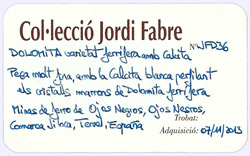 Col·lecció Jordi Fabre
DOLOMITA varietat ferrífera amb Calcita
NºJFD36
Peça molt fina, amb la Calcita blanca perfilant
els cristalls marrons de Dolomita ferrífera
Minas de ferro de Ojos Negros, Ojos Negros,
Comarca Jiloca, Teruel, España
Trobat:
Adquisició: 07/11/2013